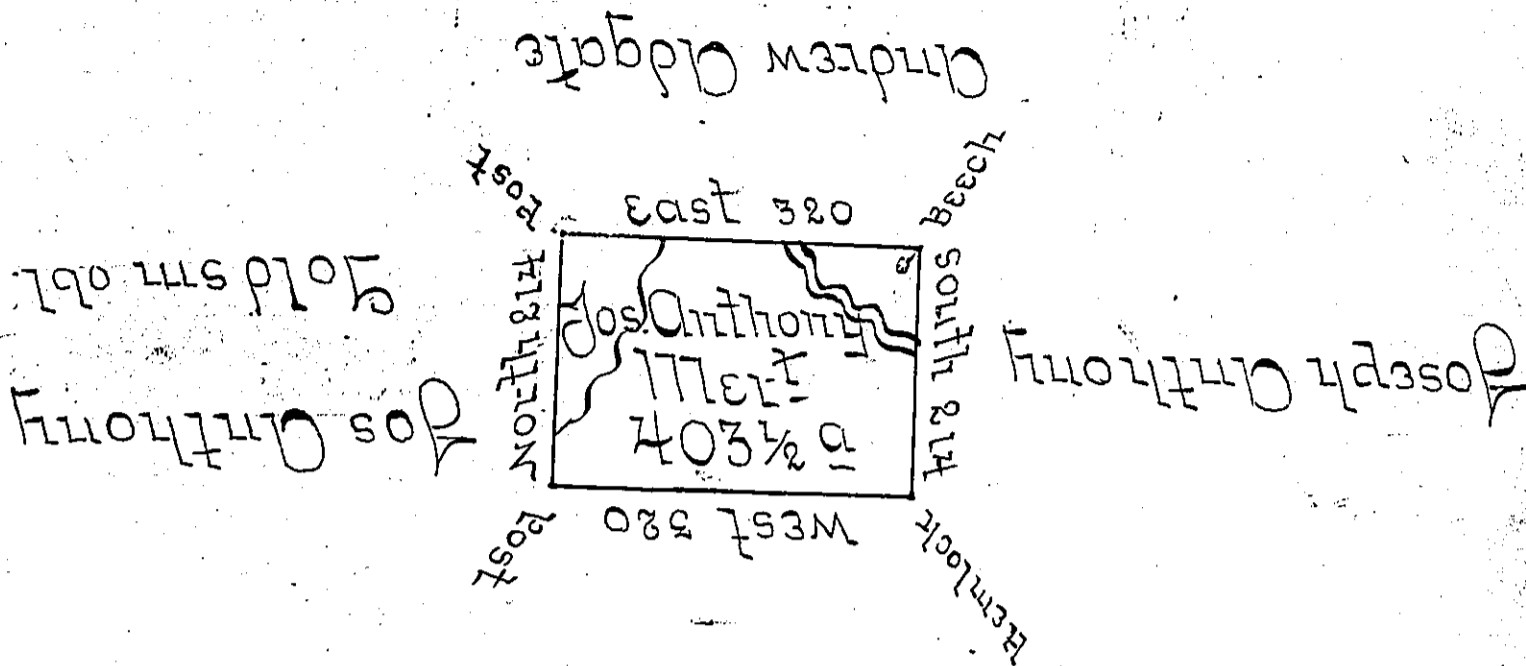 Andrew Adgate
Post
East 320
Beech
Gold sm obl.
Jos Anthony
North 214
Jos. Anthony
Mert
403½ a
a
South 214
Joseph Anthony
Post
West 320
Hemlock